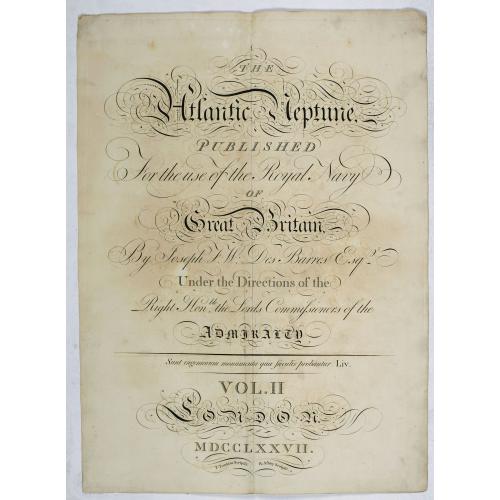 THE
Atlantic Neptune,
PUBLISHED
For the use of the Royal Navy
OF
Great Britain,
By Joseph F. W. Des Barres Esqr.
Under the Directions of the
Right Honble. the Lords Commissioners of the
ADMIRALTY
Sunt ingeniorum monumenta quæ sæculis probantur LIV.
VOL. II
LONDON.
MDCCLXXVII.